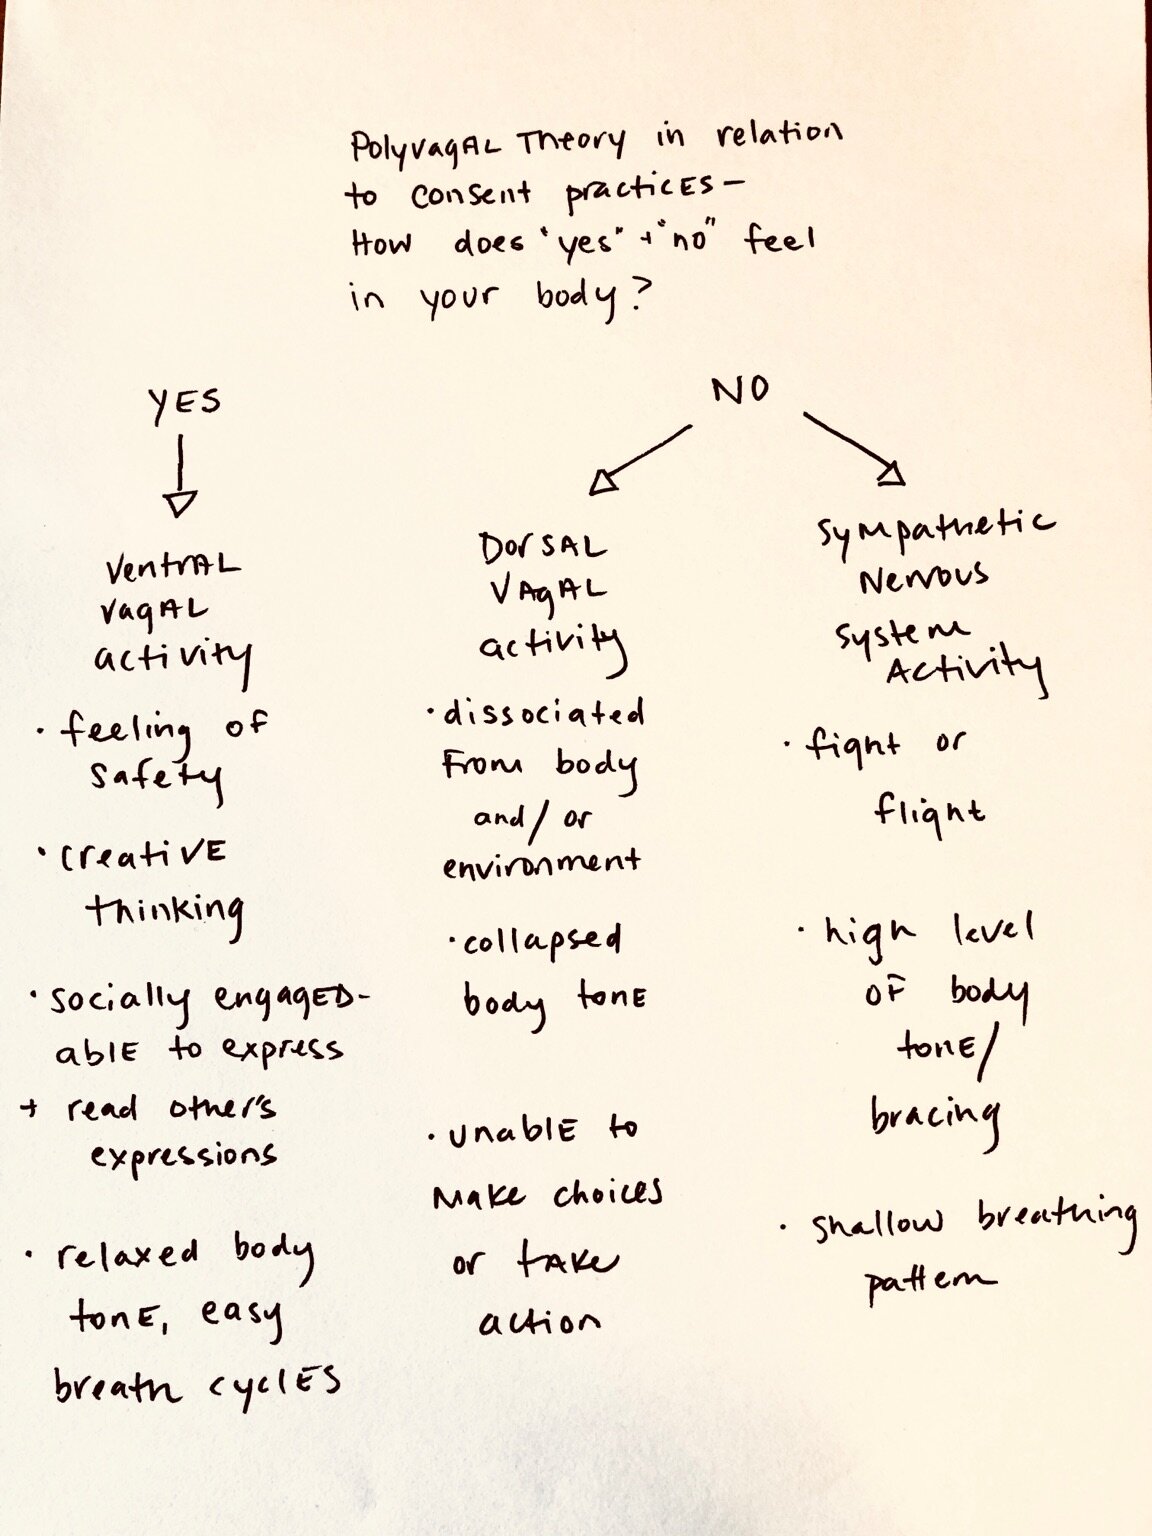 Polyvagal Theory in relation
to consent practices—
How does "yes" + "no" feel
in your body?
YES
Ventral
vagal
activity
· feeling of
safety
· creative
thinking
· socially engaged-
able to express
+ read other's
expressions
· relaxed body
tone, easy
breath cycles
NO
Dorsal
Vagal
activity
· dissociated
from body
and/or
environment
· collapsed
body tone
· unable to
make choices
or take
action
Sympathetic
Nervous
system
Activity
· fight or
flight
· high level
of body
tone/
bracing
· shallow breathing
pattern